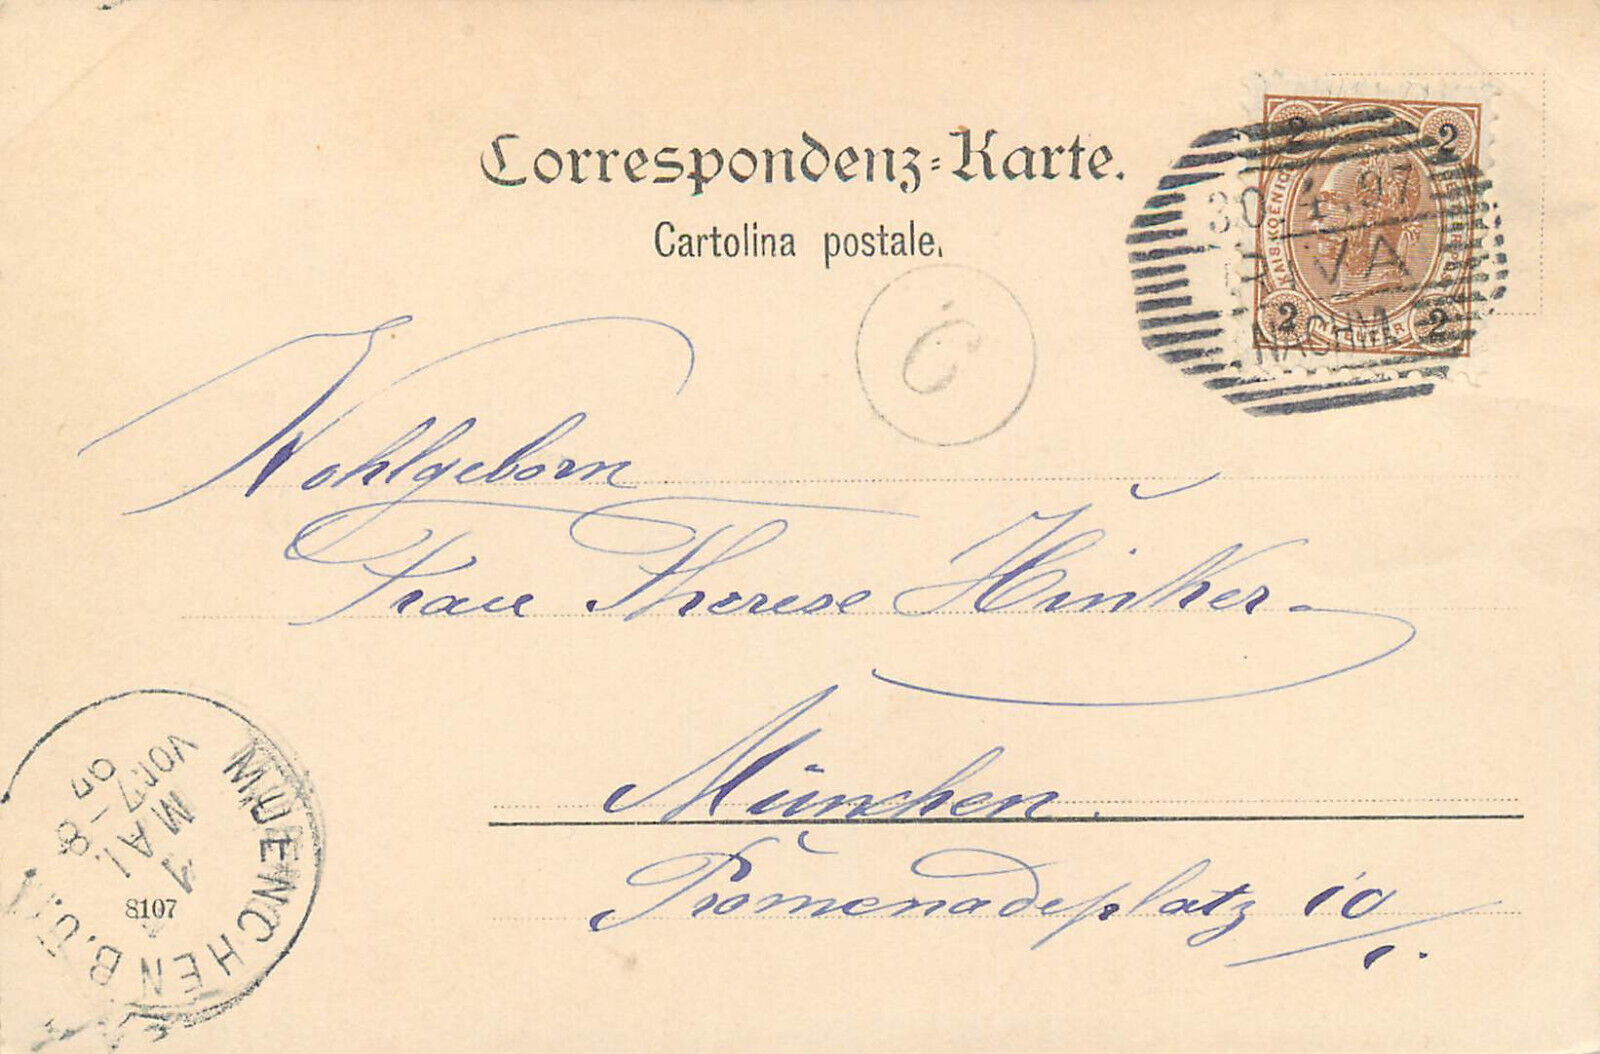 Correspondenz-Karte.
Cartolina postale.
2 2
KAIS. KOENIGL.
2 HELLER 2
30.4.97
RIVA
NACHM.
C
Wohlgeborn
Frau Therese Hinker.
München.
Promenadeplatz 10/1.
MUENCHEN B.
1
MAI.
VOR.7-8
97
8107